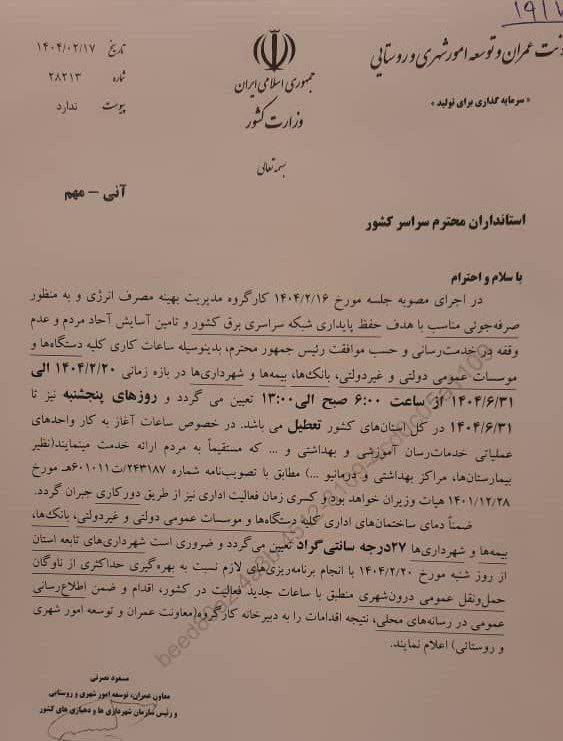 ۱۹/۲
معاونت عمران و توسعه امور شهری و روستایی
« سرمایه گذاری برای تولید »
جمهوری اسلامی ایران
وزارت کشور
بسمه تعالی
تاریخ ۱۴۰۴/۰۲/۱۷
شماره ۲۸۲۱۳
پیوست ندارد
آنی - مهم
استانداران محترم سراسر کشور
با سلام و احترام
در اجرای مصوبه جلسه مورخ ۱۴۰۴/۲/۱۶ کارگروه مدیریت بهینه مصرف انرژی و به منظور
صرفه‌جوئی مناسب با هدف حفظ پایداری شبکه سراسری برق کشور و تامین آسایش آحاد مردم و عدم
وقفه در خدمت‌رسانی و حسب موافقت رئیس جمهور محترم، بدینوسیله ساعات کاری کلیه دستگاه‌ها و
موسسات عمومی دولتی و غیردولتی، بانک‌ها، بیمه‌ها و شهرداری‌ها در بازه زمانی ۱۴۰۴/۲/۲۰ الی
۱۴۰۴/۶/۳۱ از ساعت ۶:۰۰ صبح الی ۱۳:۰۰ تعیین می گردد و روزهای پنجشنبه نیز تا
۱۴۰۴/۶/۳۱ در کل استان‌های کشور تعطیل می باشد. در خصوص ساعات آغاز به کار واحدهای
عملیاتی خدمات‌رسان آموزشی و بهداشتی و ... که مستقیماً به مردم ارائه خدمت مینمایند(نظیر
بیمارستان‌ها، مراکز بهداشتی و درمانیو ...) مطابق با تصویب‌نامه شماره ۲۴۳۱۸۷/ت۶۰۱۰۱۱هـ مورخ
۱۴۰۱/۱۲/۲۸ هیات وزیران خواهد بود و کسری زمان فعالیت اداری نیز از طریق دورکاری جبران گردد.
ضمناً دمای ساختمان‌های اداری کلیه دستگاه‌ها و موسسات عمومی دولتی و غیردولتی، بانک‌ها،
بیمه‌ها و شهرداری‌ها ۲۷درجه سانتی‌گراد تعیین می‌گردد و ضروری است شهرداری‌های تابعه استان
از روز شنبه مورخ ۱۴۰۴/۲/۲۰ با انجام برنامه‌ریزی‌های لازم نسبت به بهره‌گیری حداکثری از ناوگان
حمل‌ونقل عمومی درون‌شهری منطبق با ساعات جدید فعالیت در کشور، اقدام و ضمن اطلاع‌رسانی
عمومی در رسانه‌های محلی، نتیجه اقدامات را به دبیرخانه کارگروه(معاونت عمران و توسعه امور شهری
و روستائی) اعلام نمایند.
مسعود نصرتی
معاون عمران، توسعه امور شهری و روستایی
و رئیس سازمان شهرداری ها و دهیاری های کشور